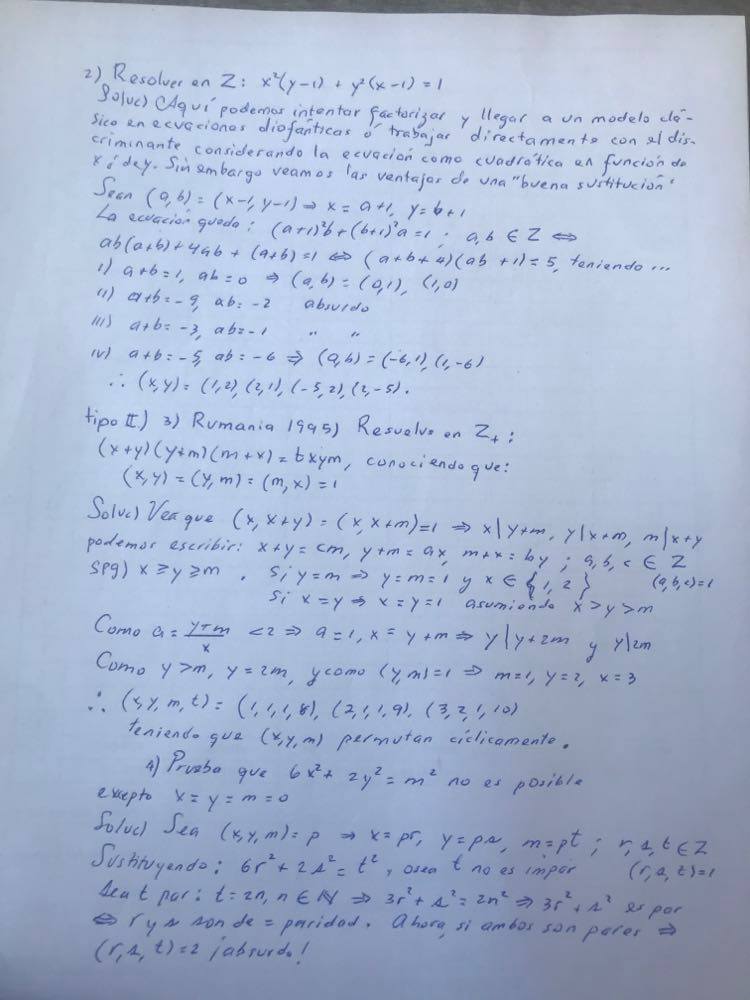 2) Resolver en Z: x²(y-1) + y²(x-1) = 1
Soluc) Aquí podemos intentar factorizar y llegar a un modelo clá-
sico en ecuaciones diofánticas o trabajar directamente con el dis-
criminante considerando la ecuación como cuadrática en función de
x ó de y. Sin embargo veamos las ventajas de una "buena sustitución"
Sean (a,b) = (x-1, y-1) ⇒ x = a+1, y = b+1
La ecuación queda: (a+1)²b + (b+1)²a = 1 ; a,b ∈ Z ⇔
ab(a+b) + 4ab + (a+b) = 1 ⇔ (a+b+4)(ab+1) = 5, teniendo ...
i) a+b = 1, ab = 0 ⇒ (a,b) = (0,1), (1,0)
ii) a+b = -9, ab = -2 absurdo
iii) a+b = -3, ab = -1 " "
iv) a+b = -5, ab = -6 ⇒ (a,b) = (-6,1), (1,-6)
∴ (x,y) = (1,2), (2,1), (-5,2), (2,-5).
tipo II.) 3) Rumania 1995) Resuelva en Z₊ :
(x+y)(y+m)(m+x) = txym, conociendo que:
(x,y) = (y,m) = (m,x) = 1
Soluc) Vea que (x, x+y) = (x, x+m) = 1 ⇒ x | y+m, y | x+m, m | x+y
podemos escribir: x+y = cm, y+m = ax, m+x = by ; a,b,c ∈ Z
spg) x ≥ y ≥ m . Si y = m ⇒ y = m = 1 y x ∈ {1, 2} (a,b,c)=1
si x = y ⇒ x = y = 1 asumiendo x > y > m
Como a = (y+m)/x < 2 ⇒ a = 1, x = y+m ⇒ y | y+2m y y | 2m
Como y > m, y = 2m, y como (y,m) = 1 ⇒ m = 1, y = 2, x = 3
∴ (x,y,m,t) = (1,1,1,8), (2,1,1,9), (3,2,1,10)
teniendo que (x,y,m) permutan cíclicamente.
4) Prueba que 6x² + 2y² = m² no es posible
excepto x = y = m = 0
Soluc) Sea (x,y,m) = p ⇒ x = pr, y = ps, m = pt ; r,s,t ∈ Z
Sustituyendo: 6r² + 2s² = t², osea t no es impar (r,s,t)=1
Sea t par: t = 2n, n ∈ N ⇒ 3r² + s² = 2n² ⇒ 3r² + s² es par
⇔ r y s son de = paridad. Ahora, si ambos son pares ⇒
(r,s,t) = 2 ¡absurdo!